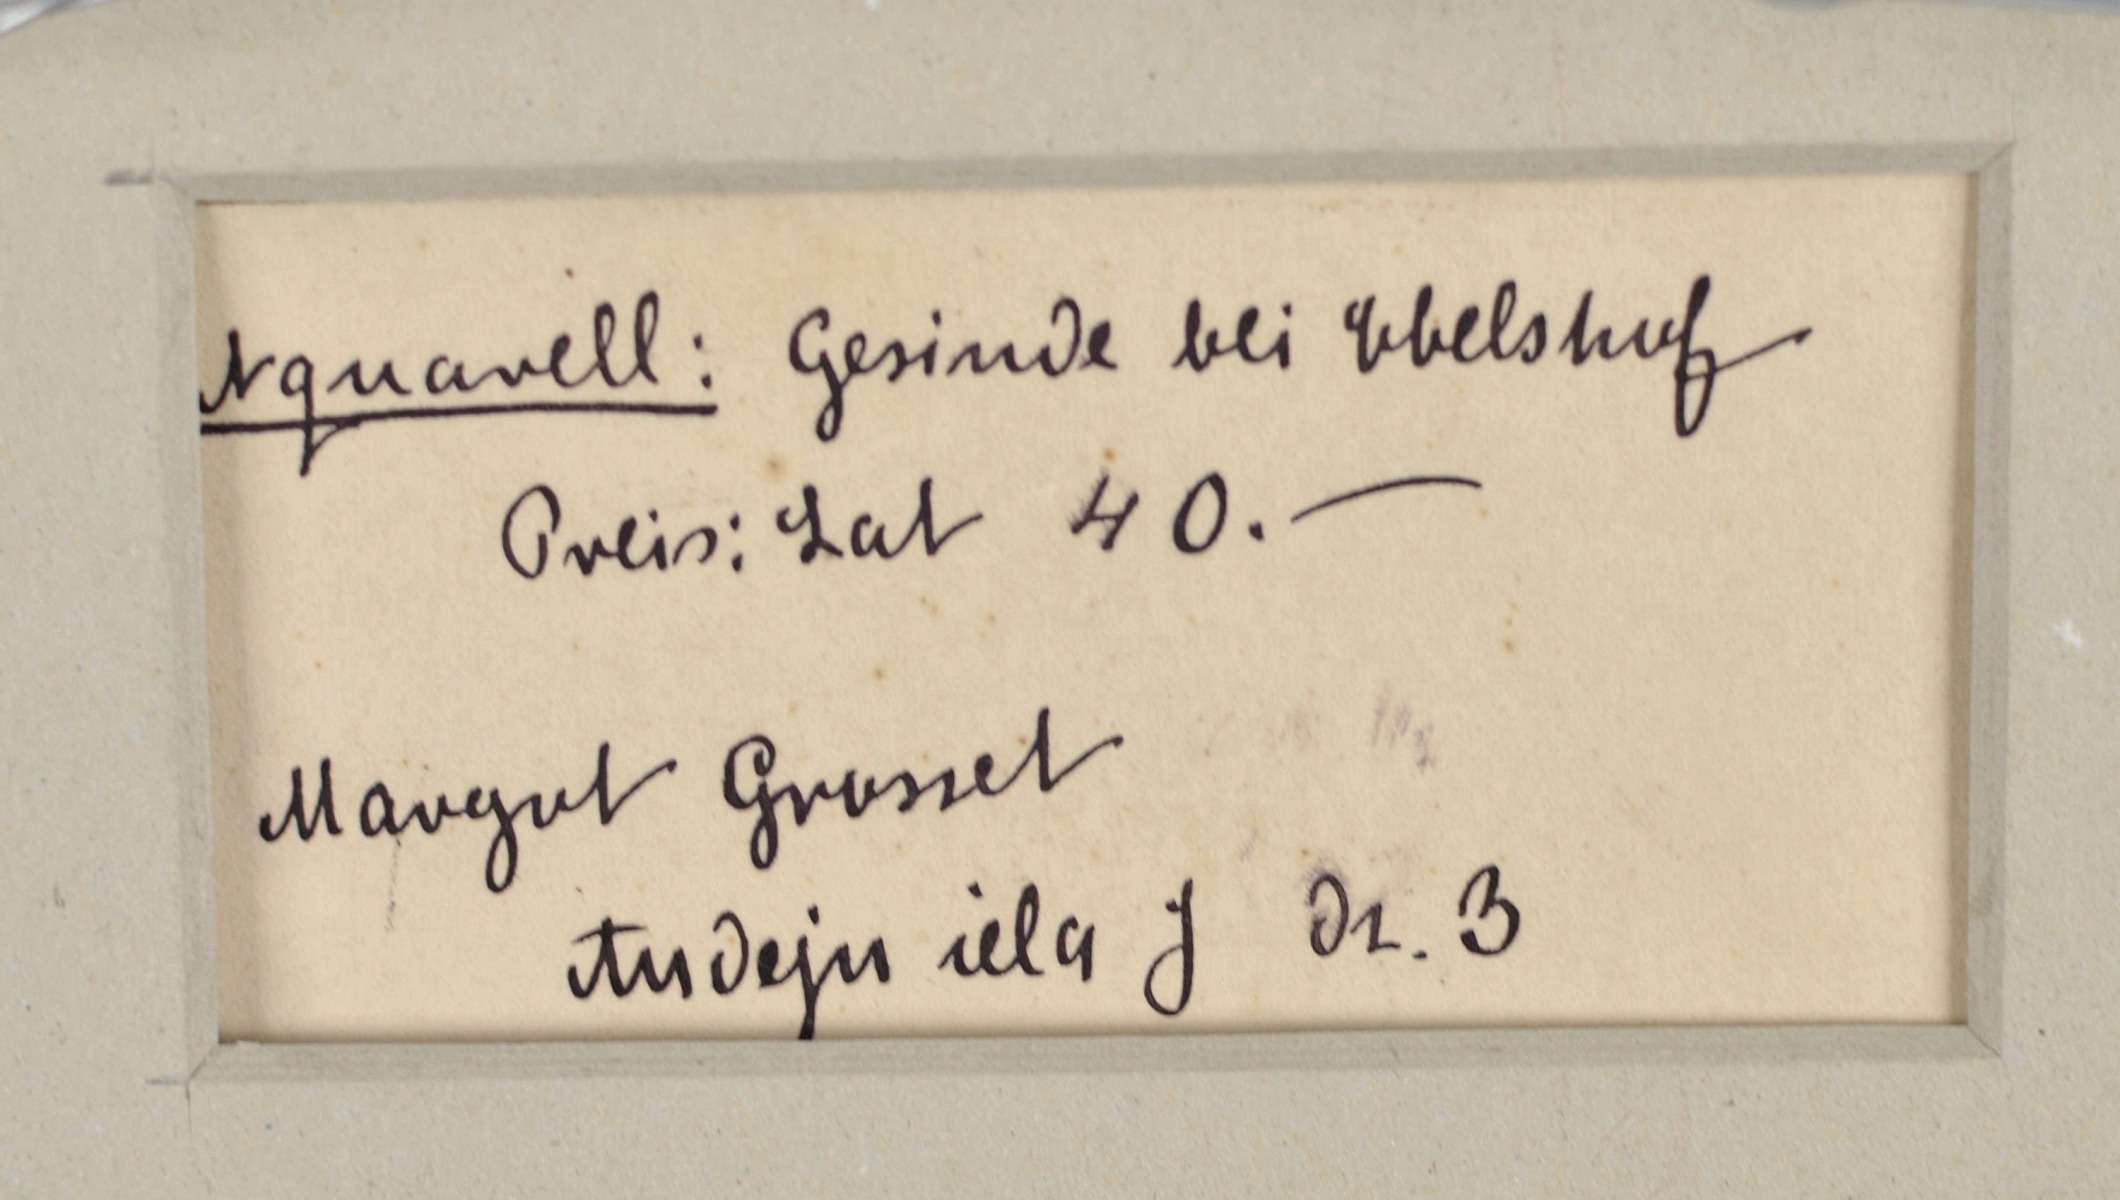 Aquarell: Gesinde bei Ebelshof
Preis: Lat 40.—
Margot Grosset
Audeju iela J dz. 3